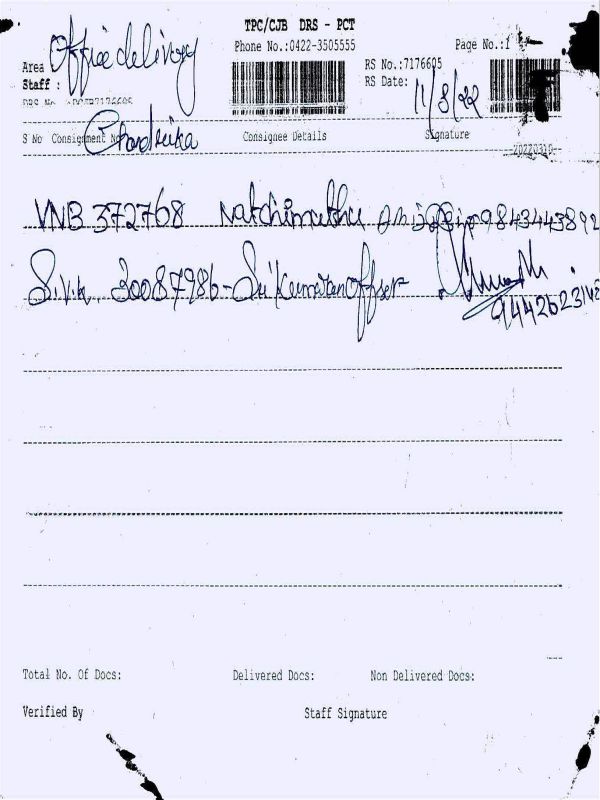 TPC/CJB DRS - PCT
Phone No.:0422-3505555 Page No.:1
Area Office delivery RS No.:7176605
Staff : RS Date: 11/8/22
DRS No
S No Consignment No Chandrika Consignee Details Signature
20220310
VNB 372768 Natchimuthu 9843443892
S.V.K 30087986-Sri Kumaran Offset
Total No. Of Docs: Delivered Docs: Non Delivered Docs:
Verified By Staff Signature